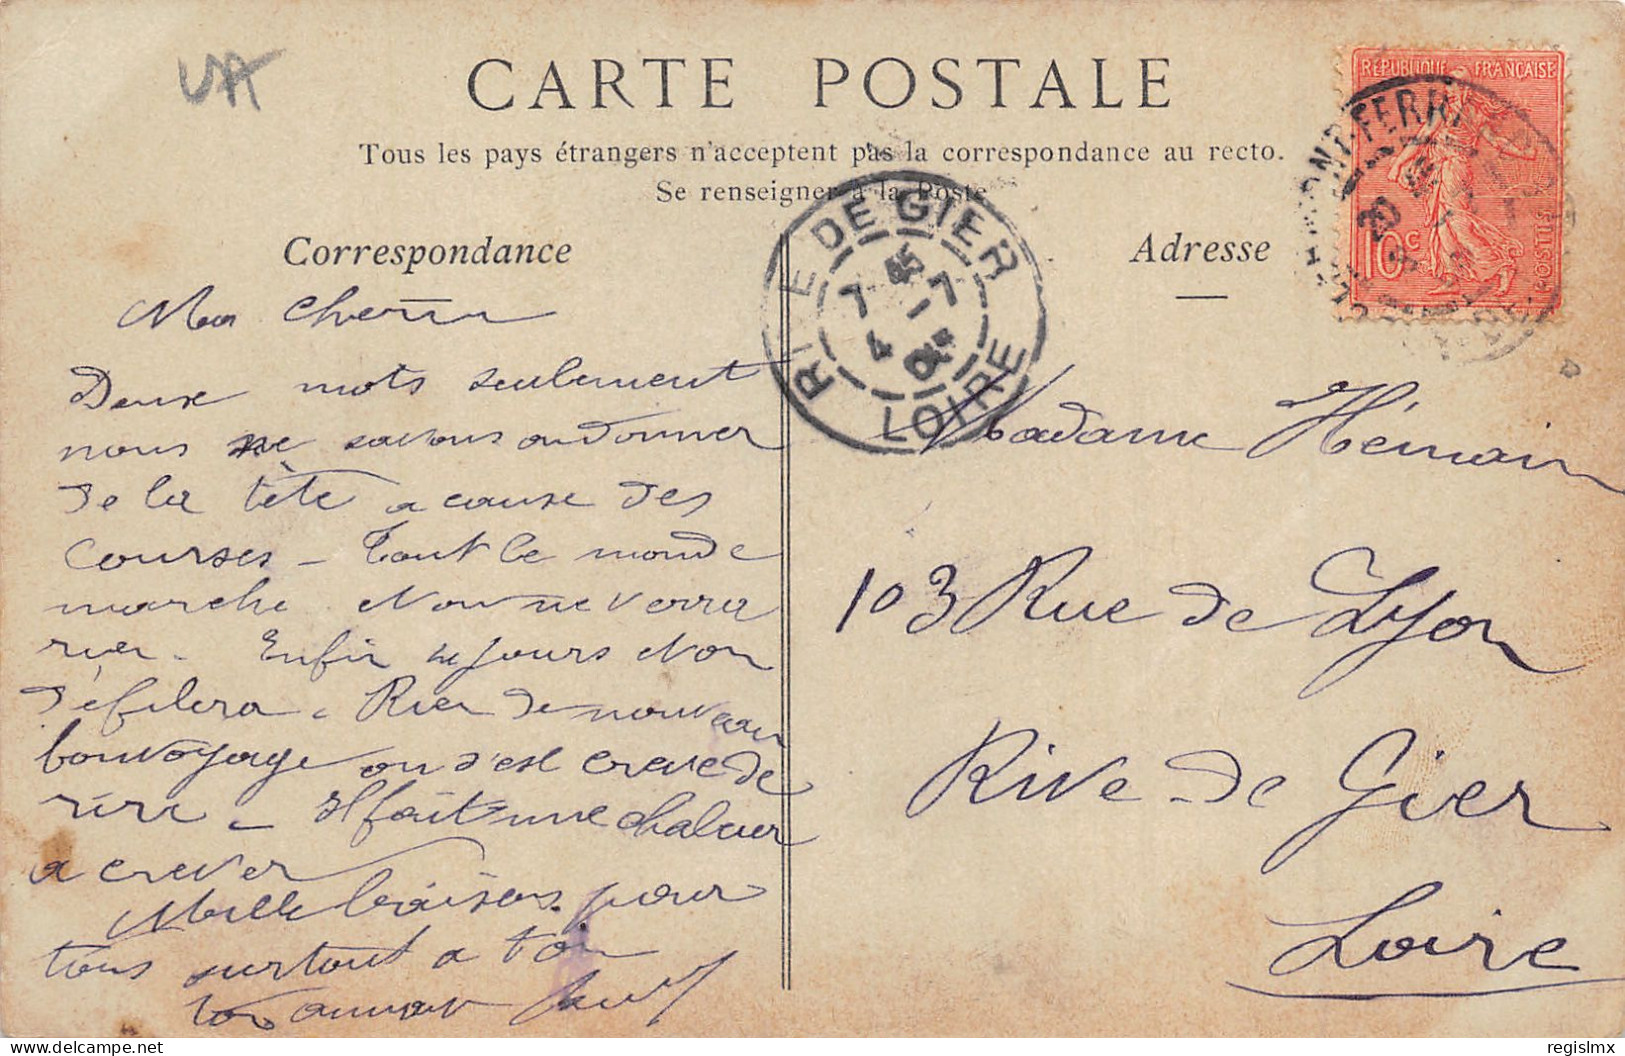 VA
CARTE POSTALE
Tous les pays étrangers n'acceptent pas la correspondance au recto.
Se renseigner à la Poste
Correspondance
Adresse
RÉPUBLIQUE FRANÇAISE
10c
POSTES
CLERMONT-FERRAND
RIVE DE GIER
7 45
4 -7
05
LOIRE
Mon
Deux mots seulement
nous ne savons ou donner
de la tête a cause des
courses - Tout le monde
marche et on ne verra
rien. Enfin jours et on
défilera. Rien de nouveau
bon voyage on s'est creve de
rire - Il fait une chaleur
a crever
Mille baisers pour
tous surtout a toi
ton
Madame Hémain
103 Rue de Lyon
Rive-de Gier
Loire
regislmx
delcampe.net